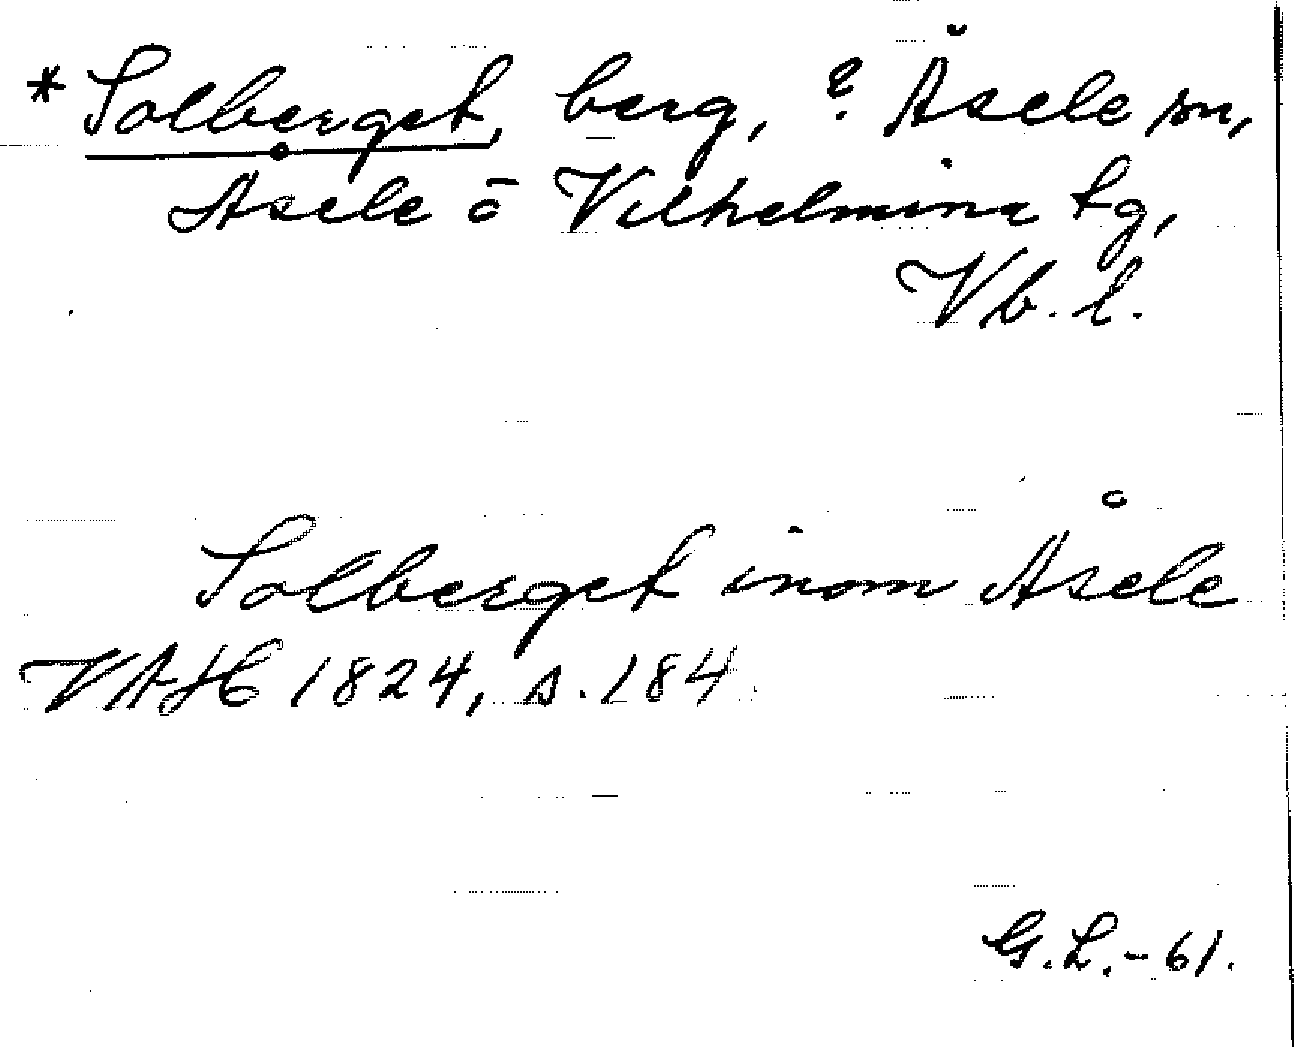 * Solberget, berg, ? Åsele sn,
Åsele o Vilhelmina tg,
Vb. l.
Solberget inom Åsele
VAH 1824, s. 184
G. L. - 61.